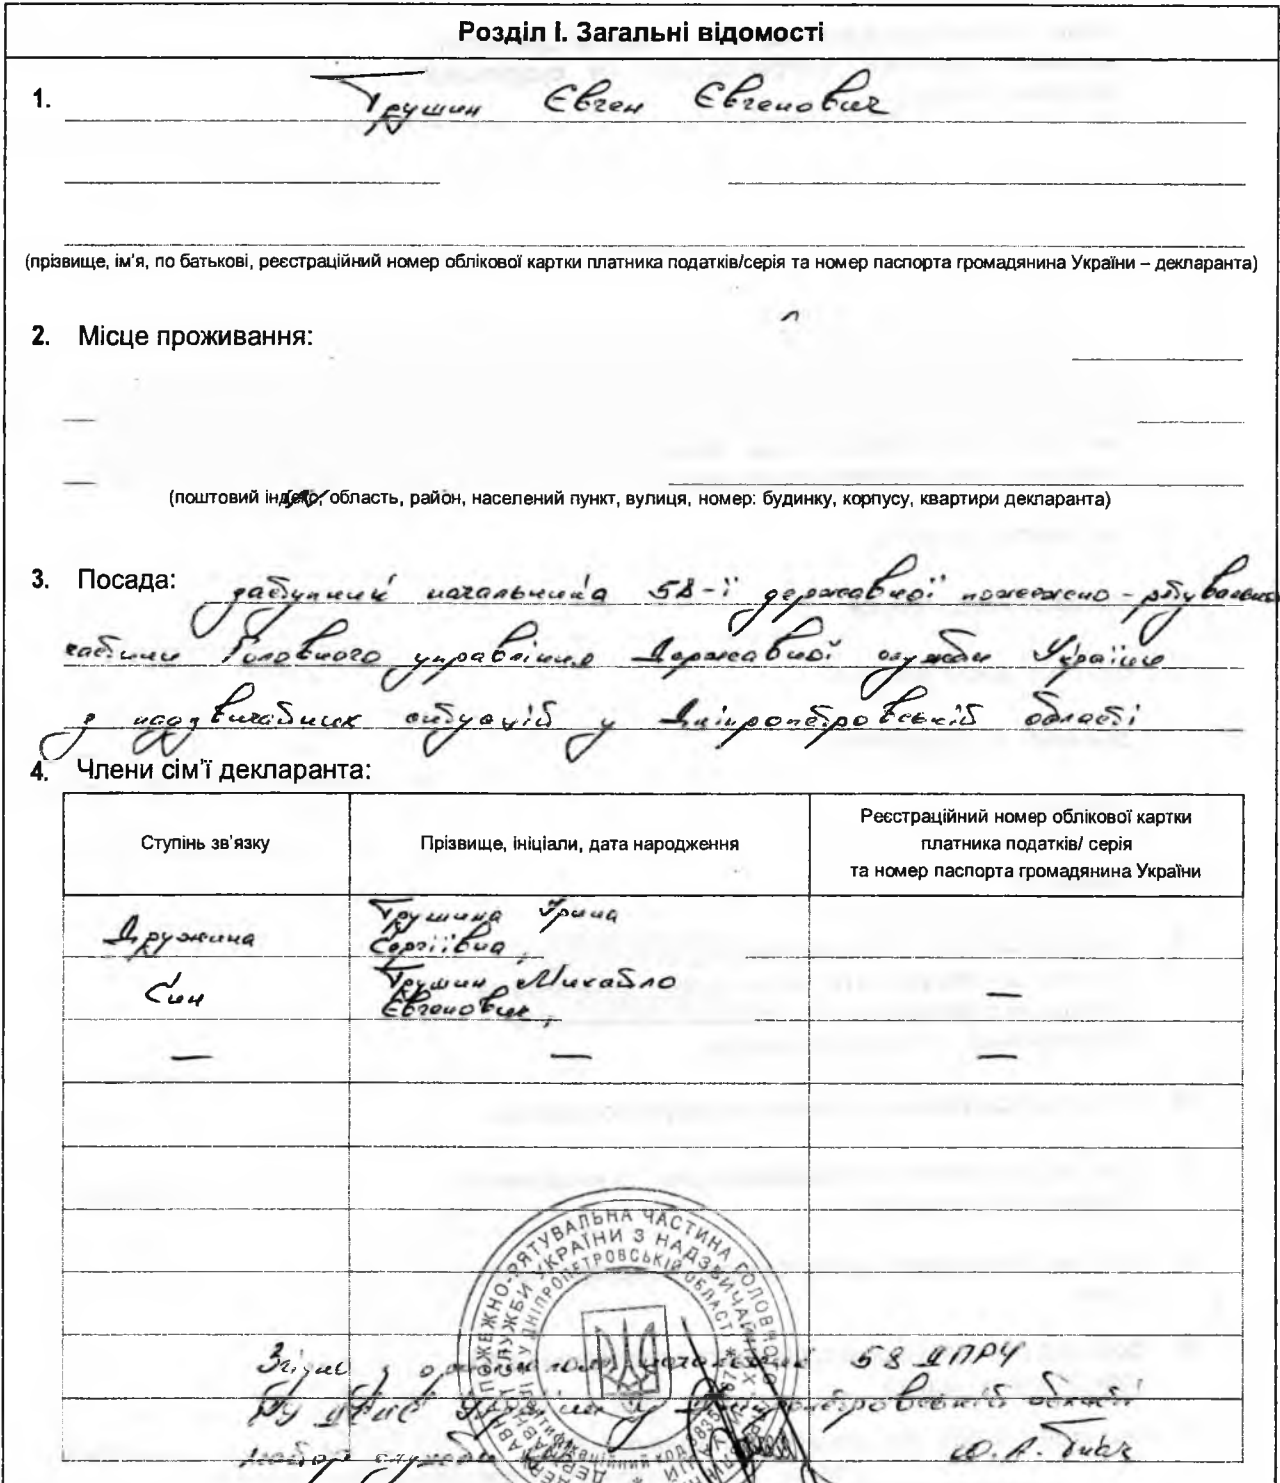 Розділ I. Загальні відомості
1. Трушин Євген Євгенович
(прізвище, ім'я, по батькові, реєстраційний номер облікової картки платника податків/серія та номер паспорта громадянина України – декларанта)
2. Місце проживання:
(поштовий індекс, область, район, населений пункт, вулиця, номер: будинку, корпусу, квартири декларанта)
3. Посада: заступник начальника 58-ї державної пожежно-рятувальної
частини Головного управління Державної служби України
з надзвичайних ситуацій у Дніпропетровській області
4. Члени сім'ї декларанта:
Ступінь зв'язку
Прізвище, ініціали, дата народження
Реєстраційний номер облікової картки
платника податків/ серія
та номер паспорта громадянина України
Дружина
Трушина Ірина
Сергіївна,
Син
Трушин Михайло
Євгенович,
—
— — —
ПОЖЕЖНО-РЯТУВАЛЬНА ЧАСТИНА ГОЛОВНОГО
СЛУЖБИ УКРАЇНИ З НАДЗВИЧАЙНИХ
У ДНІПРОПЕТРОВСЬКІЙ ОБЛАСТІ
Згідно з оригіналом начальник 58 ДПРЧ
ГУ ДСНС України у Дніпропетровській області
майор служби